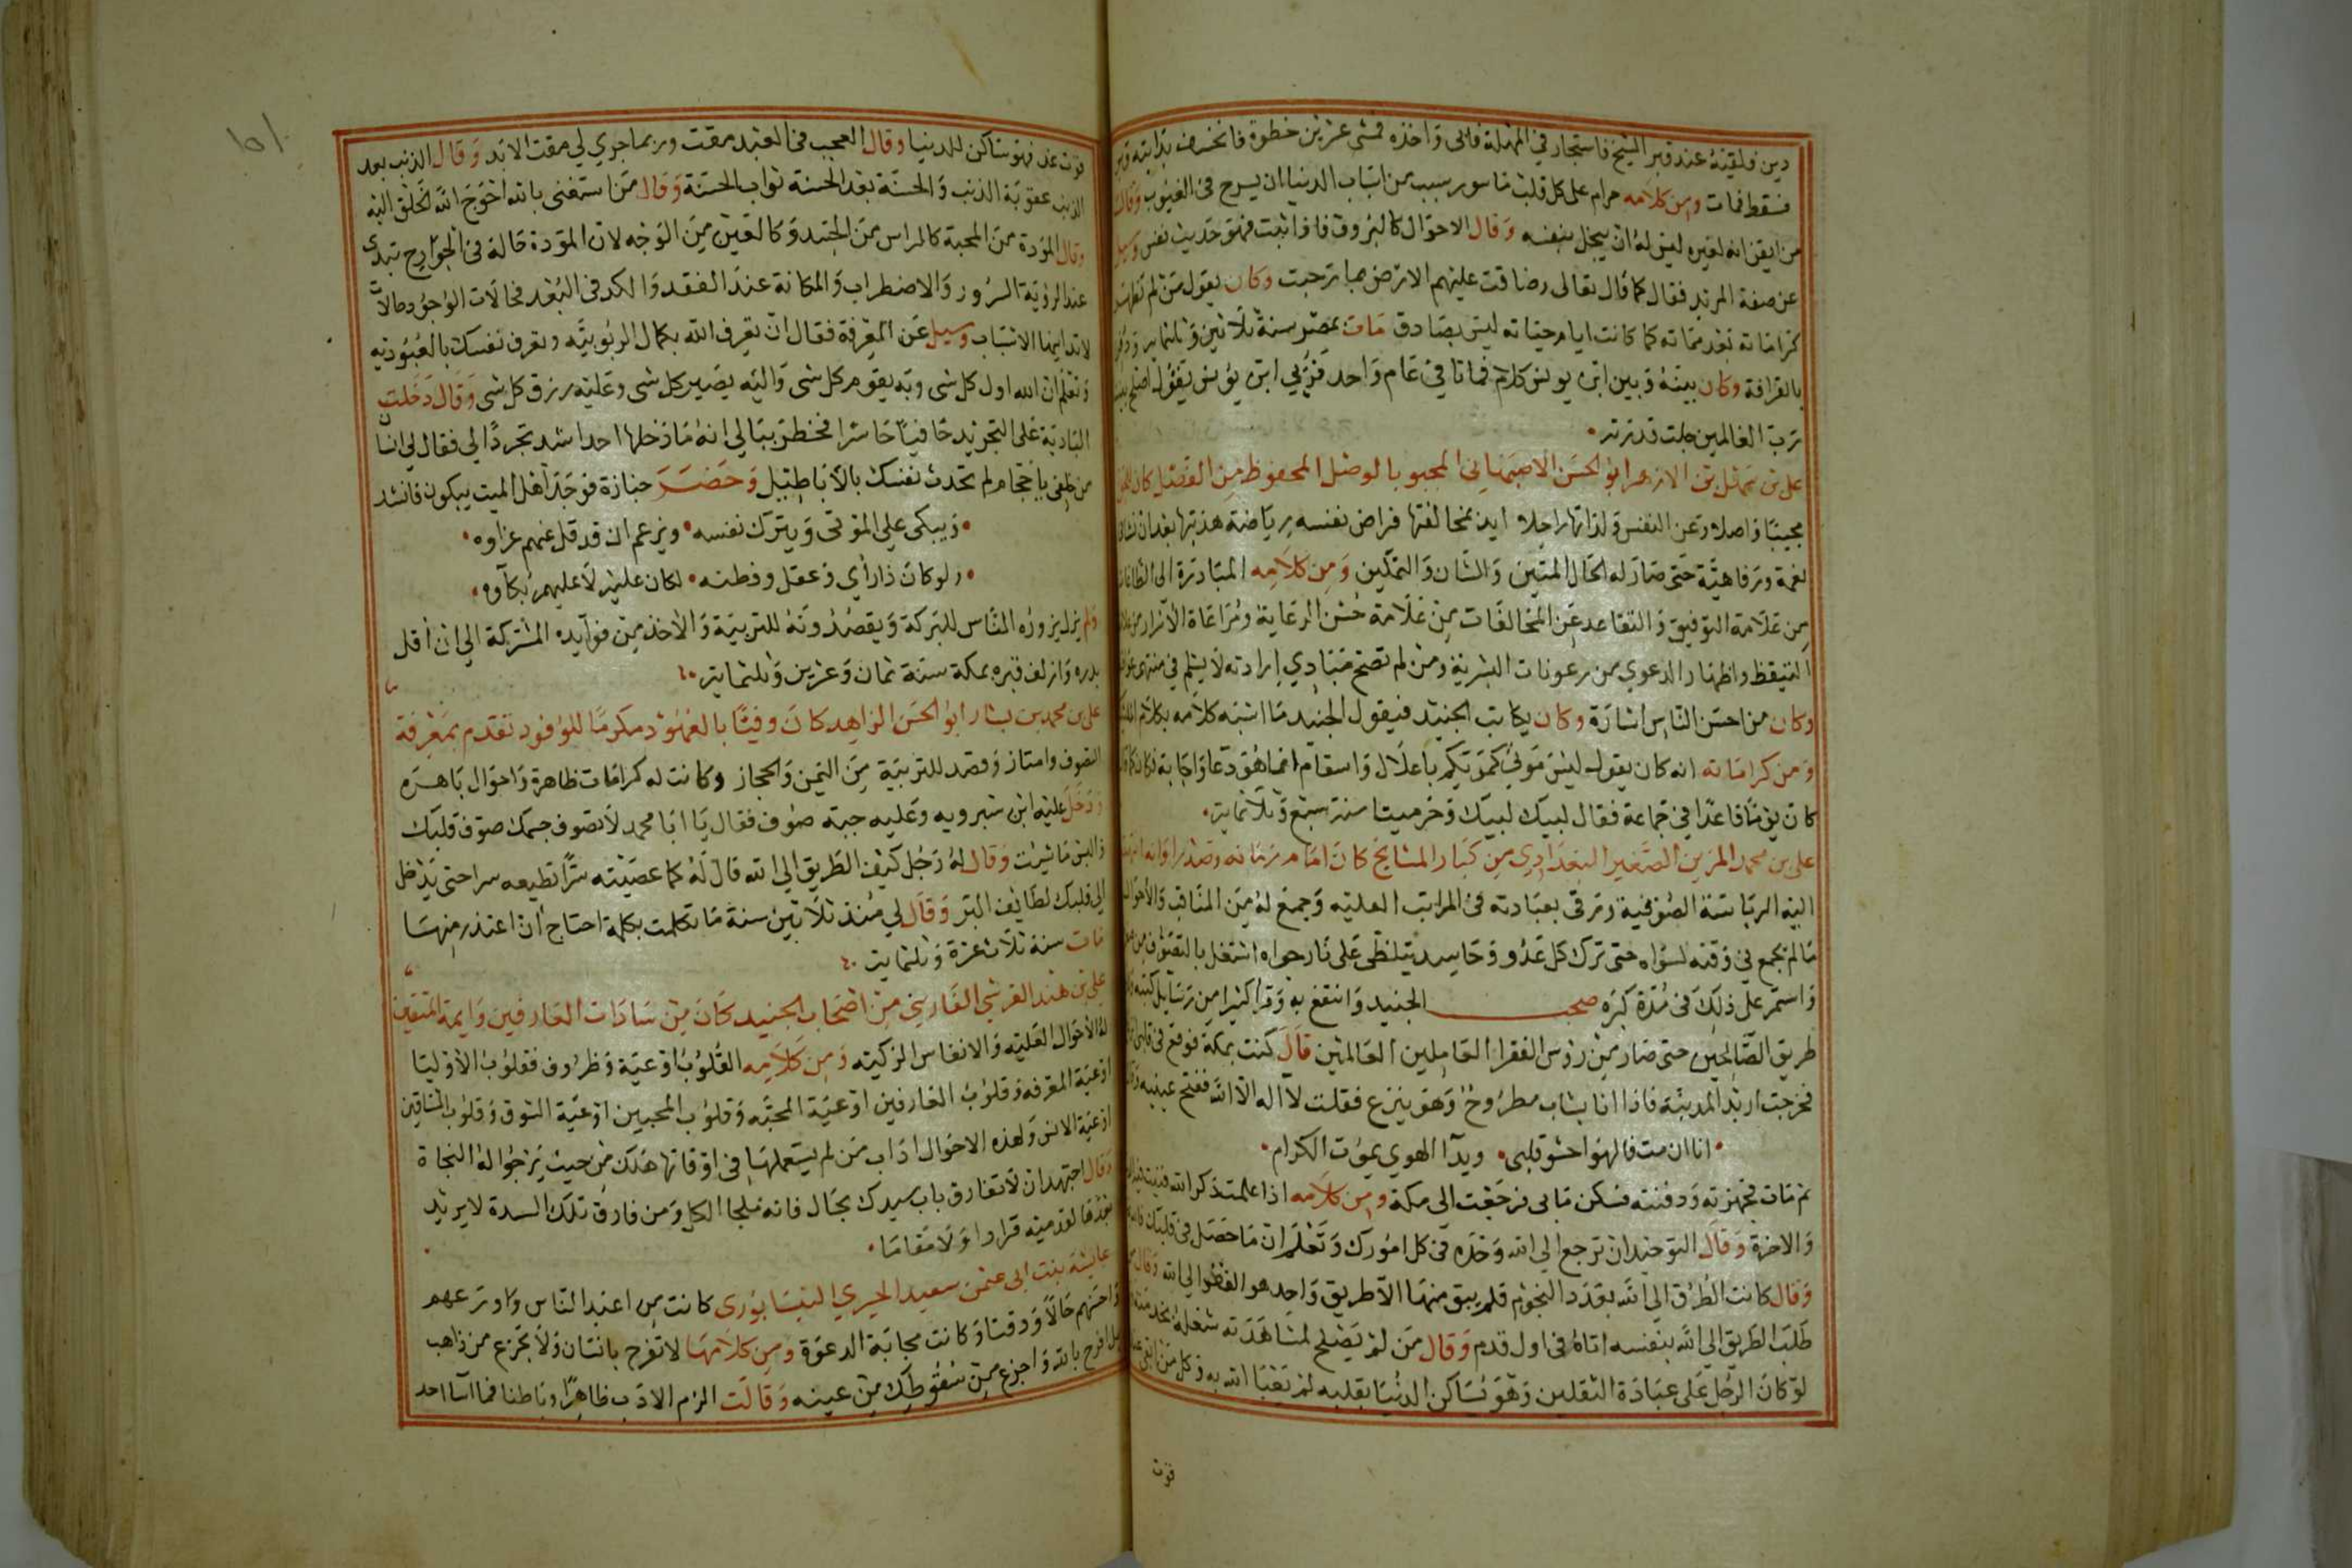 دين فلقيته عند قبر الشيخ فاستجار في المهلة فابى واخذه فمشى عشرين خطوة فانخسف بدابته
فسقط فمات ومن كلامه حرام على كل قلب ماسور بسبب من اسباب الدنيا ان يسرح في الغيوب وقال
من ايقن انه لغيره ليس له ان يبخل بنفسه وقال الاحوال كالبروق فاذا ثبتت فهو حديث نفس وسيل
عن صفة المريد فقال كما قال تعالى وضاقت عليهم الارض بما رحبت وكان يقول من لم تظهر
كراماته بعد مماته كما كانت ايام حياته ليس بصادق مات بمصر سنة ثلاثين وثلثماية ودفن
بالقرافة وكان بينه وبين ابن يونس كلام فماتا في عام واحد فرؤي ابن يونس يقول اصلح بيننا
رب العالمين جلت قدرته
علي بن سهل بن الازهر ابو الحسن الاصبهاني المحبو بالوصل المحفوظ من الفصل كان
مجيبا واصلا وعن النفس ولذاتها راحلا ايد بمخالفتها فراض نفسه رياضة هذبتها بعد ان نشا في
نعمة ورفاهية حتى صار له الحال المتين والشان والتمكين ومن كلامه المبادرة الى الطاعات
من علامة التوفيق والتقاعد عن المخالفات من علامة حسن الرعاية ومراعاة الاسرار من علامة
التيقظ واظهار الدعوي من رعونات البشرية ومن لم تصح مبادي ارادته لا يسلم في منتهى عواقبه
وكان من احسن الناس اشارة وكان يكاتب الجنيد فيقول الجنيد ما اشبه كلامه بكلام الملايكة
ومن كراماته انه كان يقول ليس موتي كموتكم باعلال واسقام انما هو دعا واجابة فكان كما قال
كان يوما قاعدا في جماعة فقال لبيك لبيك وخر ميتا سنة سبع وثلاثماية
علي بن محمد المزين الصغير البغدادي من كبار المشايخ كان امام زمانه وصدر اوانه انتهت
اليه الرياسة الصوفية وترقى بعبادته في المراتب العليه وجمع له من المناقب والاحوال
ما لم يجمع في وقته لسواه حتى ترك كل عدو وحاسد يتلظى على نار حواه اشتغل بالتصوف من صغره
واستمر على ذلك في مدة كبره صحب الجنيد وانتفع به وقرا كثيرا من رسايل كتبه في
طريق الصالحين حتى صار من رؤس الفقرا العاملين العالمين قال كنت بمكة فوقع في قلبي
فخرجت اريد المدينة فاذا انا بشاب مطروح وهو ينزع فقلت لا اله الا الله ففتح عينيه
انا ان مت فالهوا حشو قلبي وبدآ الهوي يموت الكرام
ثم مات فجهزته ودفنته فسكن ما بي فرجعت الى مكة ومن كلامه
والاخرة وقال التوحيد ان ترجع الي الله وحده في كل امورك وتعلم ان ما حصل في قلبك
وقال كانت الطرق الي الله بعدد النجوم فلم يبق منها الا طريق واحد هو الفقر الي الله وقال من
طلب الطريق الي الله بنفسه اتاه في اول قدم وقال من لم يصلح لمشاهدته شغله بخدمته
لو كان الرجل على عبادة الثقلين وهو يساكن الدنيا بقلبه لم يعبا الله به وكل من
فوت
فوت غد فهو ساكن للدنيا وقال العجب في العبد مقت وربما جري لي مقت الابد وقال الذنب بعد
الذنب عقوبة الذنب والحسنة بعد الحسنة ثواب الحسنة وقال من استغنى بالله احوج الله الخلق اليه
وقال المودة من المحبة كالراس من الجسد وكالعين من الوجه لان المودة حالة في الجوارح تبدى
عند الرؤية السرور والاضطراب والمكانة عند الفقد والكد في البعد فحالات الوجود وحالات
لابد ايها الاسباب وسيل عن المعرفة فقال ان تعرف الله بكمال الربوبية وتعرف نفسك بالعبودية
وتعلم ان الله اول كل شى وبه يقوم كل شى واليه يصير كل شى وعليه رزق كل شى وقال دخلت
البادية على التجريد حافيا حاسرا فخطر ببالي انه ما دخلها احد اشد تجردا لي فقال لي انسان
من خلفي يا حجام لم تحدث نفسك بالاباطيل وحضر جنازة فوجد اهل الميت يبكون فانشد
ويبكى علي الموتى ويترك نفسه ويزعم ان قد قل عنهم عزاوه
ولو كان ذا رأي وعقل وفطنه لكان عليه لا عليهم بكآوه
ولم يزل يزوره الناس للبركة ويقصدونه للتربية والاخذ من فوايده المشتركة الي ان أفل
بدره وازلف قبره بمكة سنة ثمان وعشرين وثلثماية
علي بن محمد بن بشار ابو الحسن الزاهد كان وفيا بالعهود مكرما للوفود تقدم بمعرفة
التصوف وامتاز وقصد للتربية من اليمن والحجاز وكانت له كرامات ظاهرة واحوال باهره
ودخل عليه ابن شبرويه وعليه جبة صوف فقال يا ابا محمد لا تصوف جسمك صوف قلبك
والبس ما شيت وقال له رجل كيف الطريق الي الله قال له كما عصيته سرا تطيعه سرا حتى يدخل
الي قلبك لطايف البر وقال لي منذ ثلاثين سنة ما تكلمت بكلمة احتاج ان اعتذر منها
مات سنة ثلاث عشرة وثلثماية
علي بن هند القرشي الفارسي من اصحاب الجنيد كان من سادات العارفين وايمة المتقين
له الاحوال العليه والانفاس الزكيته ومن كلامه القلوب اوعية وظروف فقلوب الاوليا
اوعية المعرفه وقلوب العارفين اوعية المحبه وقلوب المحبين اوعية الشوق وقلوب المشتاقين
اوعية الانس ولهذه الاحوال اداب من لم يستعملها في اوقاتها هلك من حيث يرجوا له النجاة
وقال اجتهد ان لا تفارق باب سيدك بحال فانه ملجا الكل ومن فارق تلك السدة لا يريد
بعدها لقدميه قرارا ولا مقاما
عايشة بنت ابي عثمن سعيد الحيري النيسابوري كانت من اعبد الناس واورعهم
واحسنهم حالا ووقتا وكانت مجابة الدعوة ومن كلامها لا تفرح بانسان ولا تجزع من ذاهب
بل افرح بالله واجزع من سقوطك من عينه وقالت الزم الادب ظاهرا وباطنا فما اسا احد